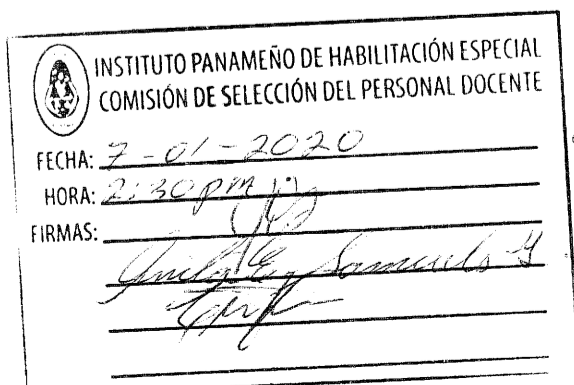 INSTITUTO PANAMEÑO DE HABILITACIÓN ESPECIAL
COMISIÓN DE SELECCIÓN DEL PERSONAL DOCENTE
FECHA: 7-01-2020
HORA: 2:30 pm
FIRMAS:
Samuels G